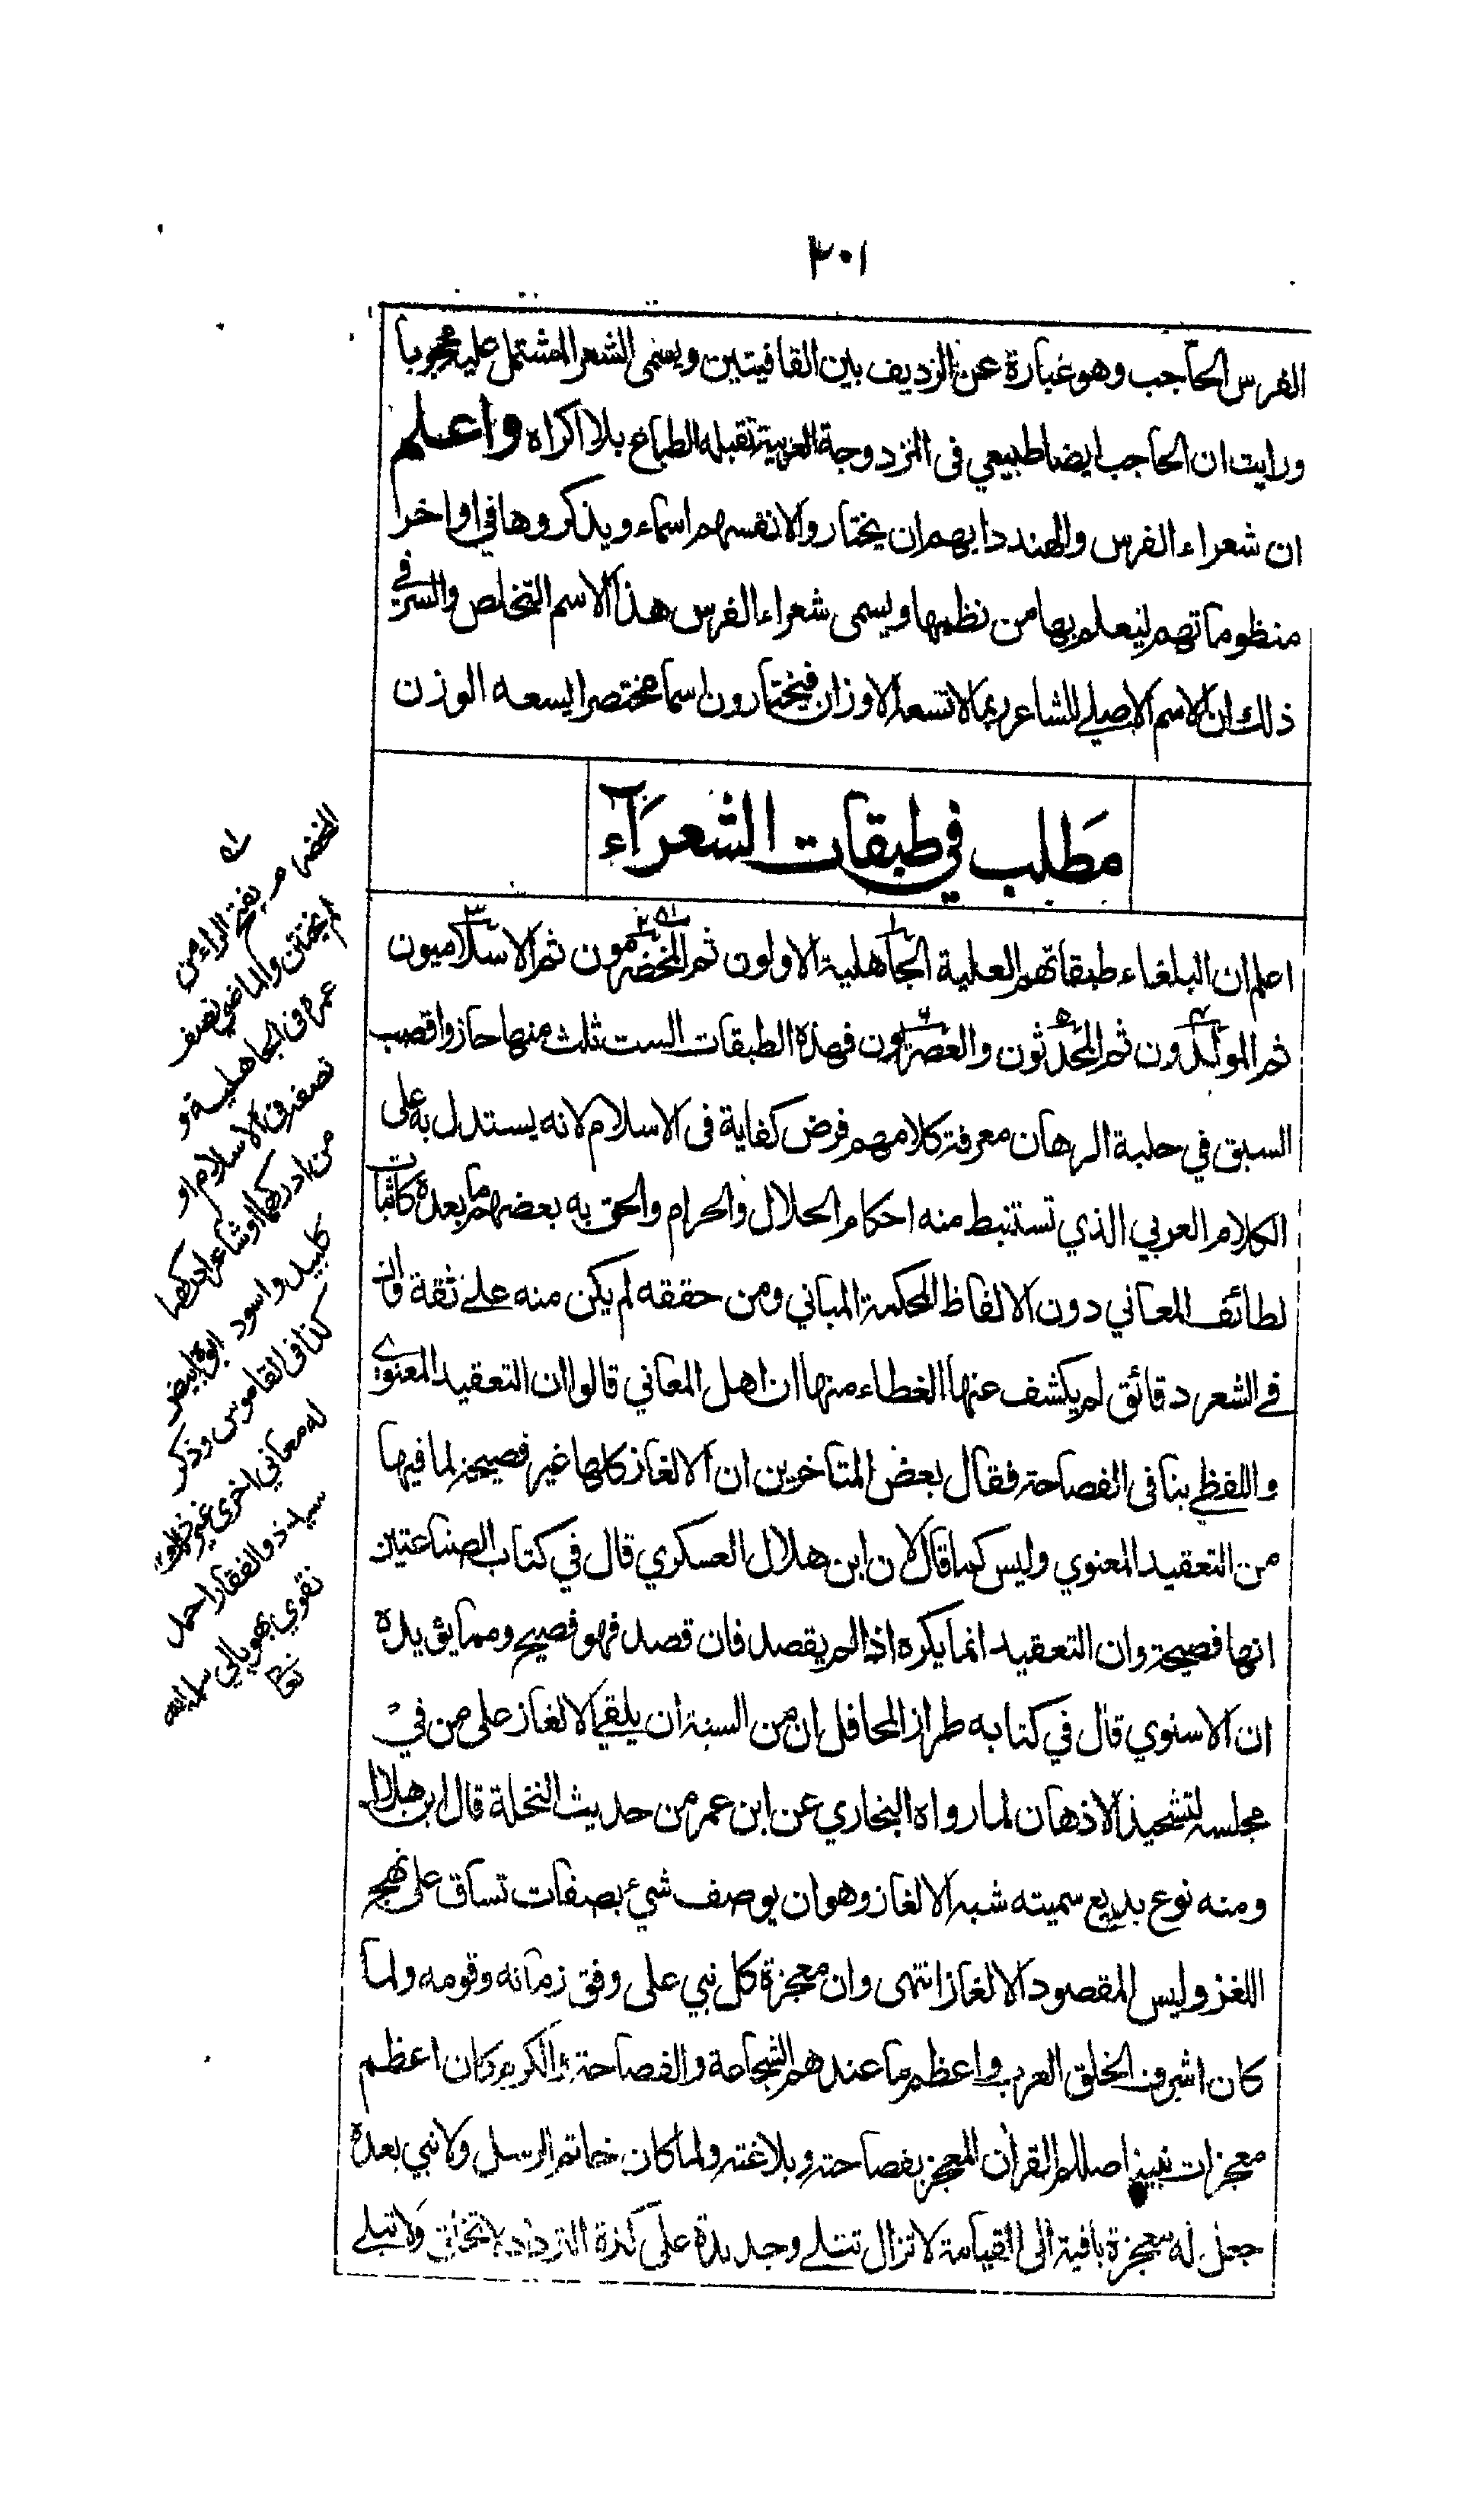 ٣٠١
الفرس الحاجب وهو عبارة عن الرديف بين القافيتين ويسمى الشعر المشتمل عليه محجوبا
ورايت ان الحاجب ايضا طبيعي فى المزدوجة العربية تقبله الطباع بلا اكراه واعلم
ان شعراء الفرس والهند دابهم ان يختاروا لانفسهم اسماء ويذكروها في اواخر
منظوماتهم ليعلم بها من نظمها ويسمى شعراء الفرس هذا الاسم التخلص والسر في
ذلك ان الاسم الاصلي للشاعر ربما لا تسعه الاوزان فيختارون اسما مختصرا يسعه الوزن
مطلب في طبقات الشعراء
اعلم ان البلغاء طبقاتهم العلية الجاهلية الاولون ثم المخضرمون ثم الاسلاميون
ثم المولدون ثم المحدثون والعصريون فهذه الطبقات الست ثلث منها حازوا قصب
السبق في حلبة الرهان معرفة كلامهم فرض كفاية فى الاسلام لانه يستدل به على
الكلام العربي الذي تستنبط منه احكام الحلال والحرام والحق به بعضهم ما بعده كاثبات
لطائف المعاني دون الالفاظ المحكمة المباني ومن حققه لم يكن منه على ثقة وان
في الشعر دقائق لم يكشف عنها الغطاء منها ان اهل المعاني قالوا ان التعقيد المعنوي
واللفظي ينافى الفصاحة فقال بعض المتاخرين ان الالغاز كلها غير فصيحة لما فيها
من التعقيد المعنوي وليس كما قال لان ابن هلال العسكري قال في كتاب الصناعتين
انها فصيحة وان التعقيد انما يكره اذا لم يقصد فان قصد فهو فصيح ومما يؤيده
ان الاسنوي قال في كتابه طراز المحافل ان من السنة ان يلقي الالغاز على من في
مجلسه لتشحيذ الاذهان لما رواه البخاري عن ابن عمر من حديث النخلة قال ابن هلال
ومنه نوع بديع سميته شبه الالغاز وهو ان يوصف شيء بصفات تساق على نهج
اللغز وليس المقصود الالغاز انتهى وان معجزة كل نبي على وفق زمانه وقومه ولما
كان اشرف الخلق العرب واعظم ما عندهم الشجاعة والفصاحة والكرم وكان اعظم
معجزات نبينا صللم القران المعجز بفصاحته وبلاغته ولما كان خاتم الرسل ولا نبي بعده
جعل له معجزة باقية الى القيامة لا تزال تتلى وجديدة على كثرة الترداد لا تخلق ولا تبلى
المخضرم بفتح الراء من
لم يختتن والماضي نصف
عمره في الجاهلية و
نصفه في الاسلام او
من ادركهما او شاعر ادركهما
كلبيد واسود ابوه ابيض
كذا فى القاموس وذكر
له معاني اخرى غير ذلك
سيد ذوالفقار احمد
نقوي بهوپالي سلمه الله
تعا